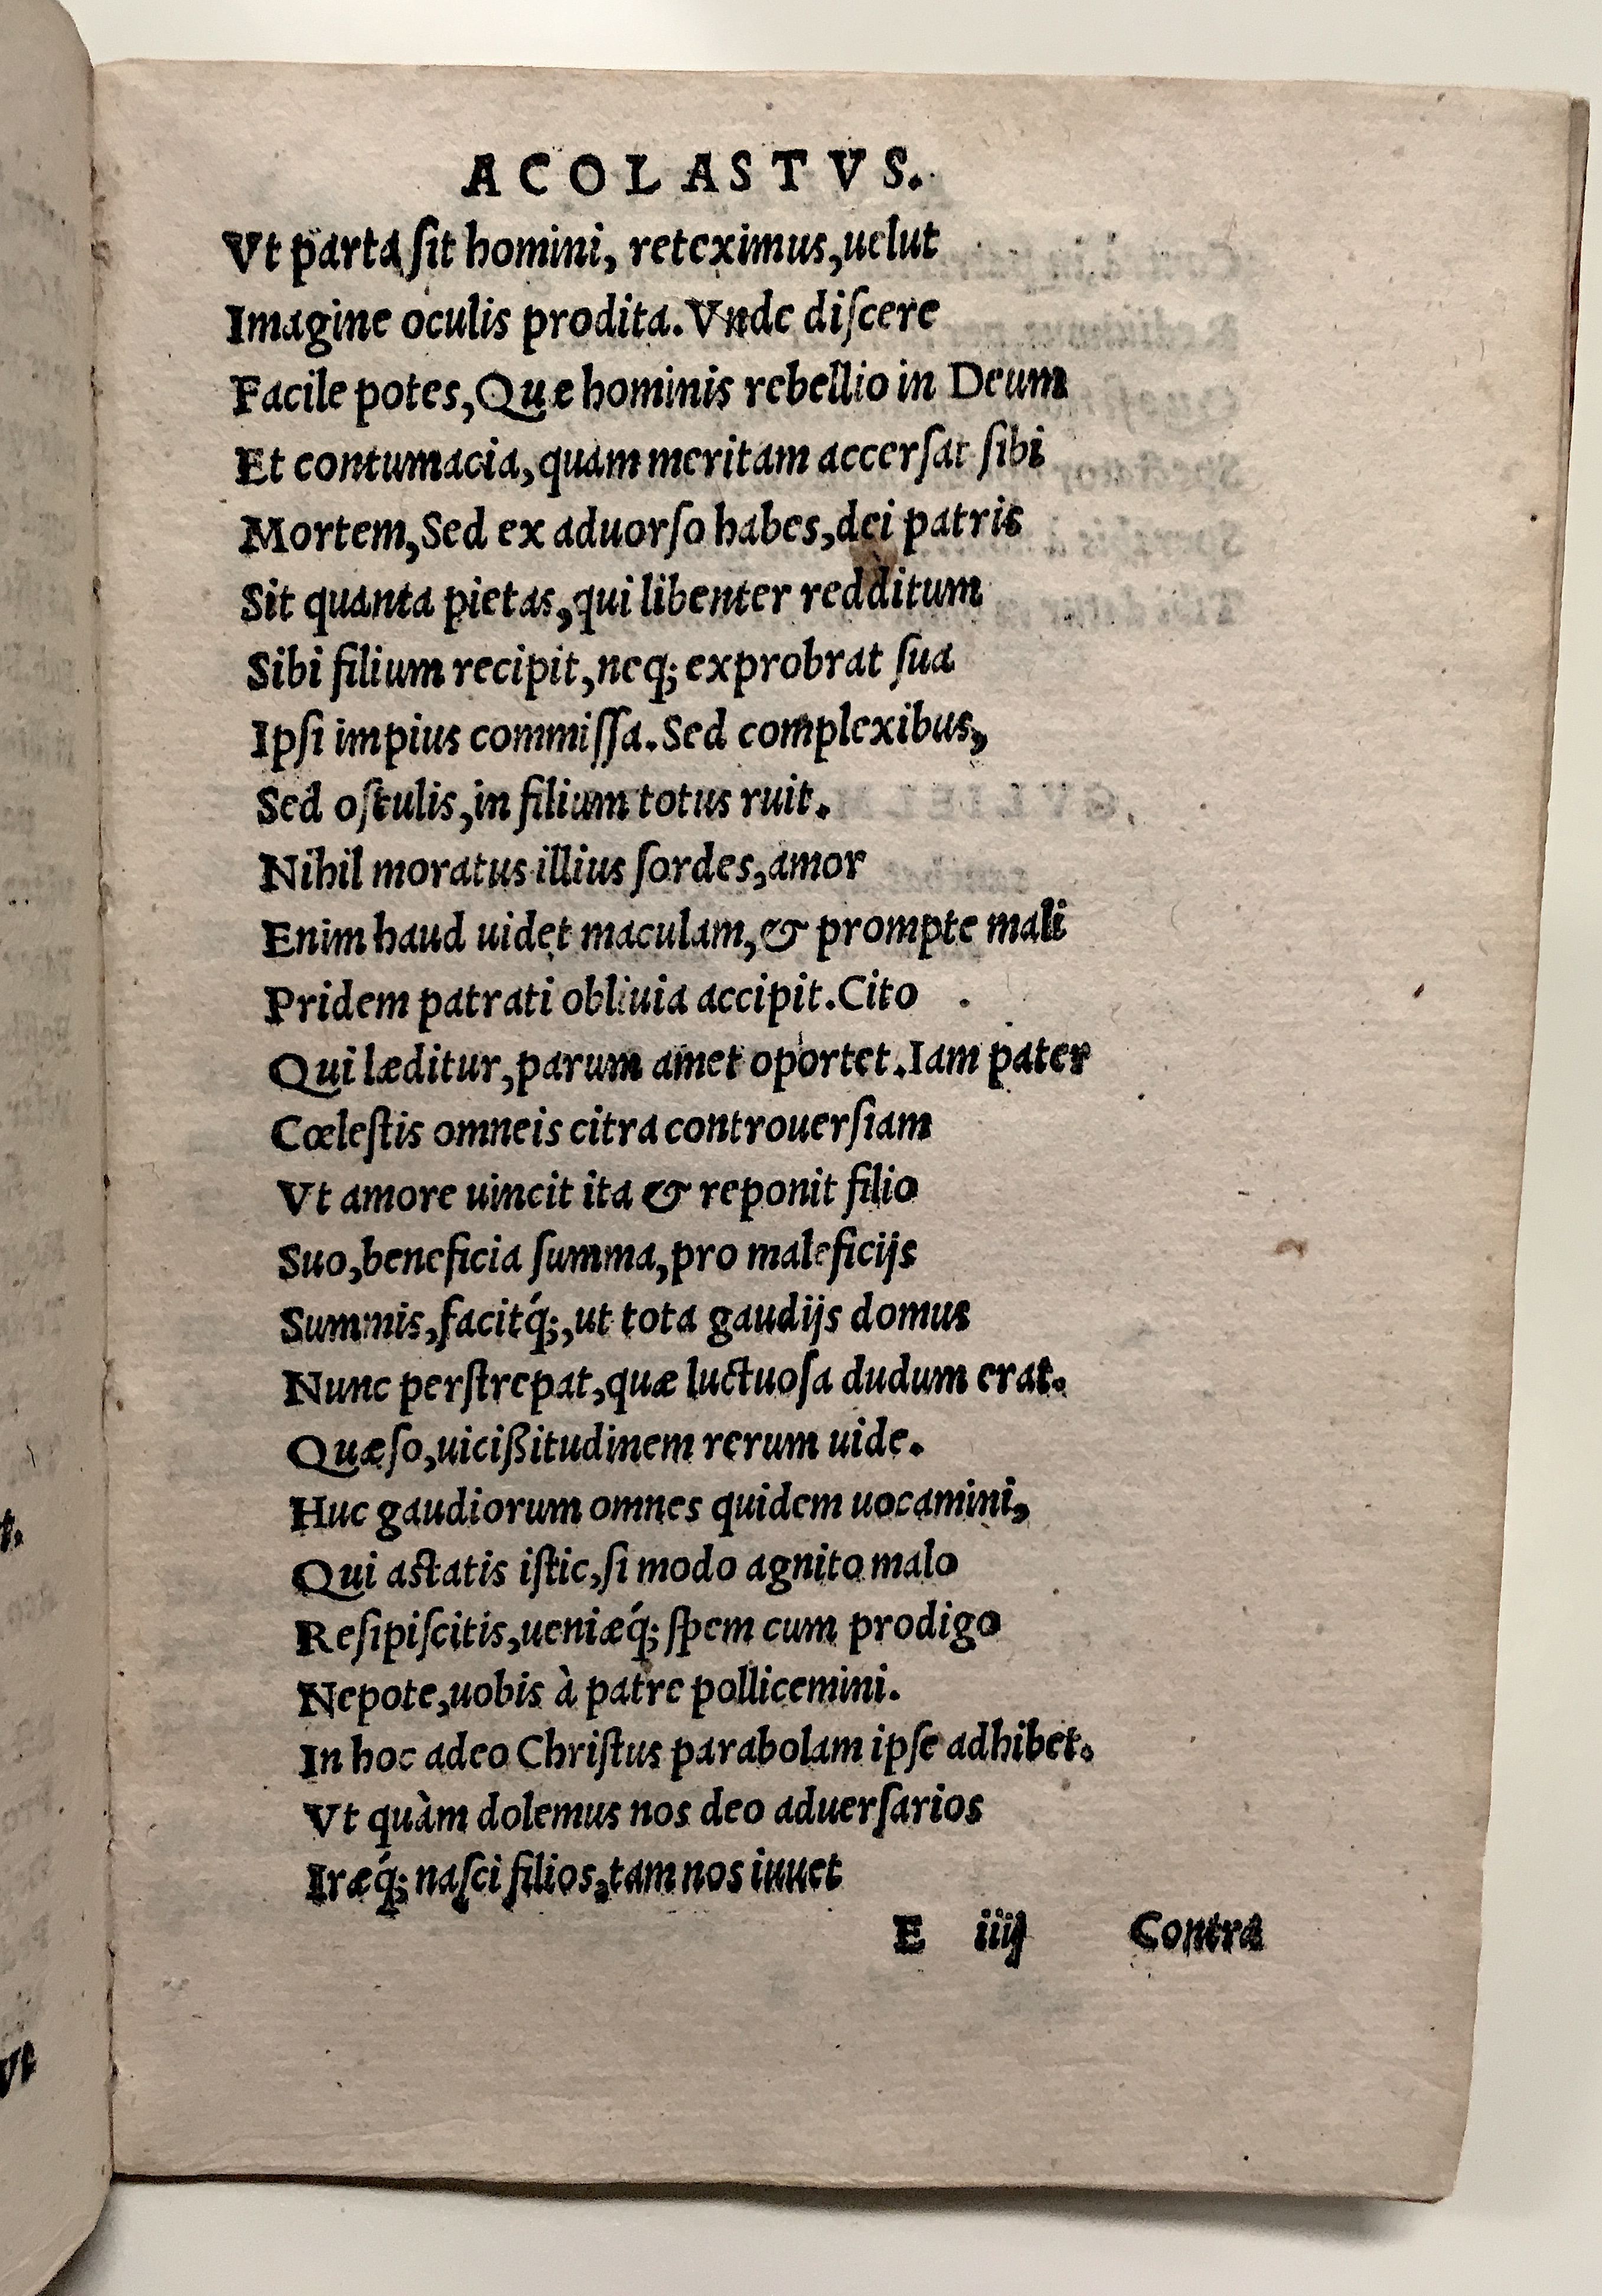 ACOLASTVS.
Vt parta ſit homini, reteximus, uelut
Imagine oculis prodita. Vnde diſcere
Facile potes, Quæ hominis rebellio in Deum
Et contumacia, quam meritam accerſat ſibi
Mortem, Sed ex aduorſo habes, dei patris
Sit quanta pietas, qui libenter redditum
Sibi filium recipit, neq; exprobrat ſua
Ipſi impius commiſſa. Sed complexibus,
Sed oſculis, in filium totus ruit.
Nihil moratus illius ſordes, amor
Enim haud uidet maculam, & prompte mali
Pridem patrati obliuia accipit. Cito
Qui læditur, parum amet oportet. Iam pater
Cœleſtis omneis citra controuerſiam
Vt amore uincit ita & reponit filio
Suo, beneficia ſumma, pro maleficijs
Summis, facitq́;, ut tota gaudijs domus
Nunc perſtrepat, quæ luctuoſa dudum erat.
Quæſo, uicißitudinem rerum uide.
Huc gaudiorum omnes quidem uocamini,
Qui aſtatis iſtic, ſi modo agnito malo
Reſipiſcitis, ueniæq́; ſpem cum prodigo
Nepote, uobis à patre pollicemini.
In hoc adeo Chriſtus parabolam ipſe adhibet.
Vt quàm dolemus nos deo aduerſarios
Iræq́; naſci filios, tam nos iuuet
E iiij Contra
t.
Vt